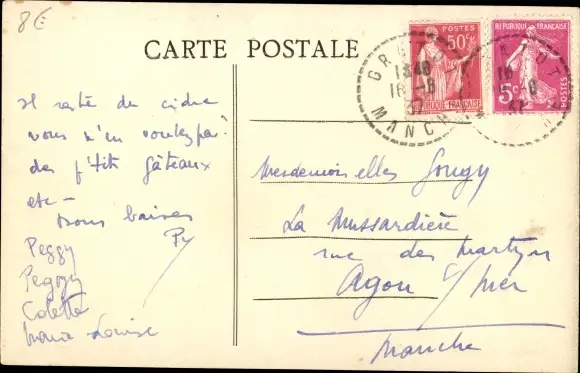 8€
CARTE POSTALE
POSTES
50c
RÉPUBLIQUE FRANÇAISE
RÉPUBLIQUE FRANÇAISE
5c
POSTES
18 40
16 -8
37
MANCHE
Il reste du cidre
vous n'en voulez pas?
des p'tits gâteaux
etc -
bons baisers
Py
Peggy
Peggy
Colette
Maria Louise
Mesdemoiselles Gougy
La Mussardière
rue des Martyrs
Agon s/mer
Manche